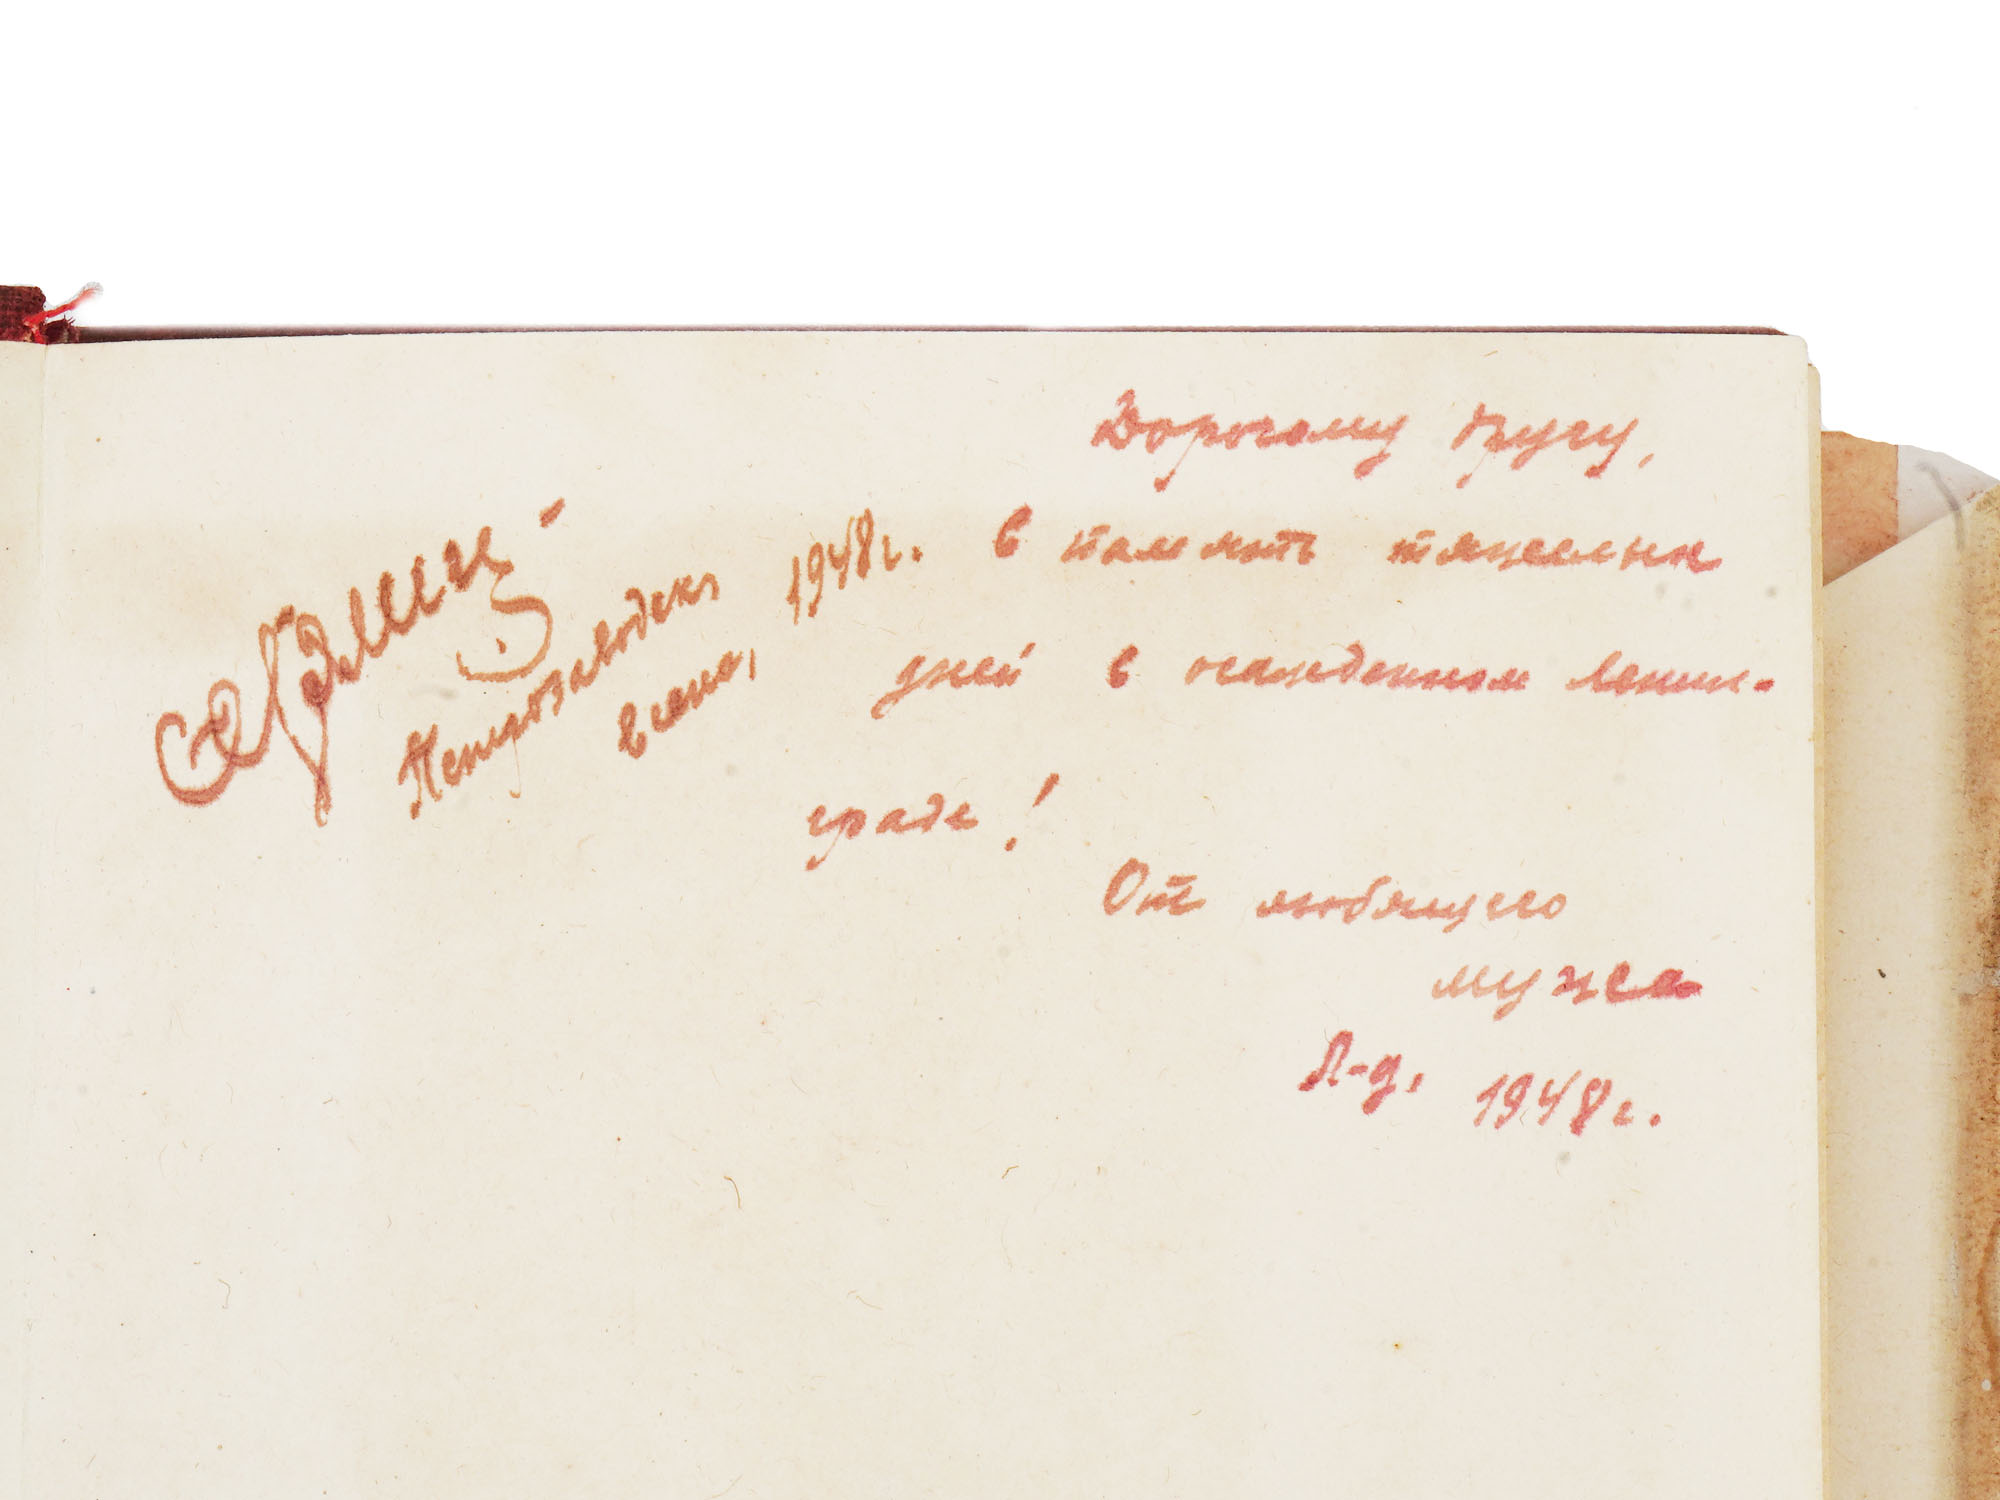 Дорогому другу,
в память тяжелых
дней в осажденном Ленин-
граде!
От любящего
мужа
Л-д, 1948 г.
Петрозаводск,
весна, 1948 г.